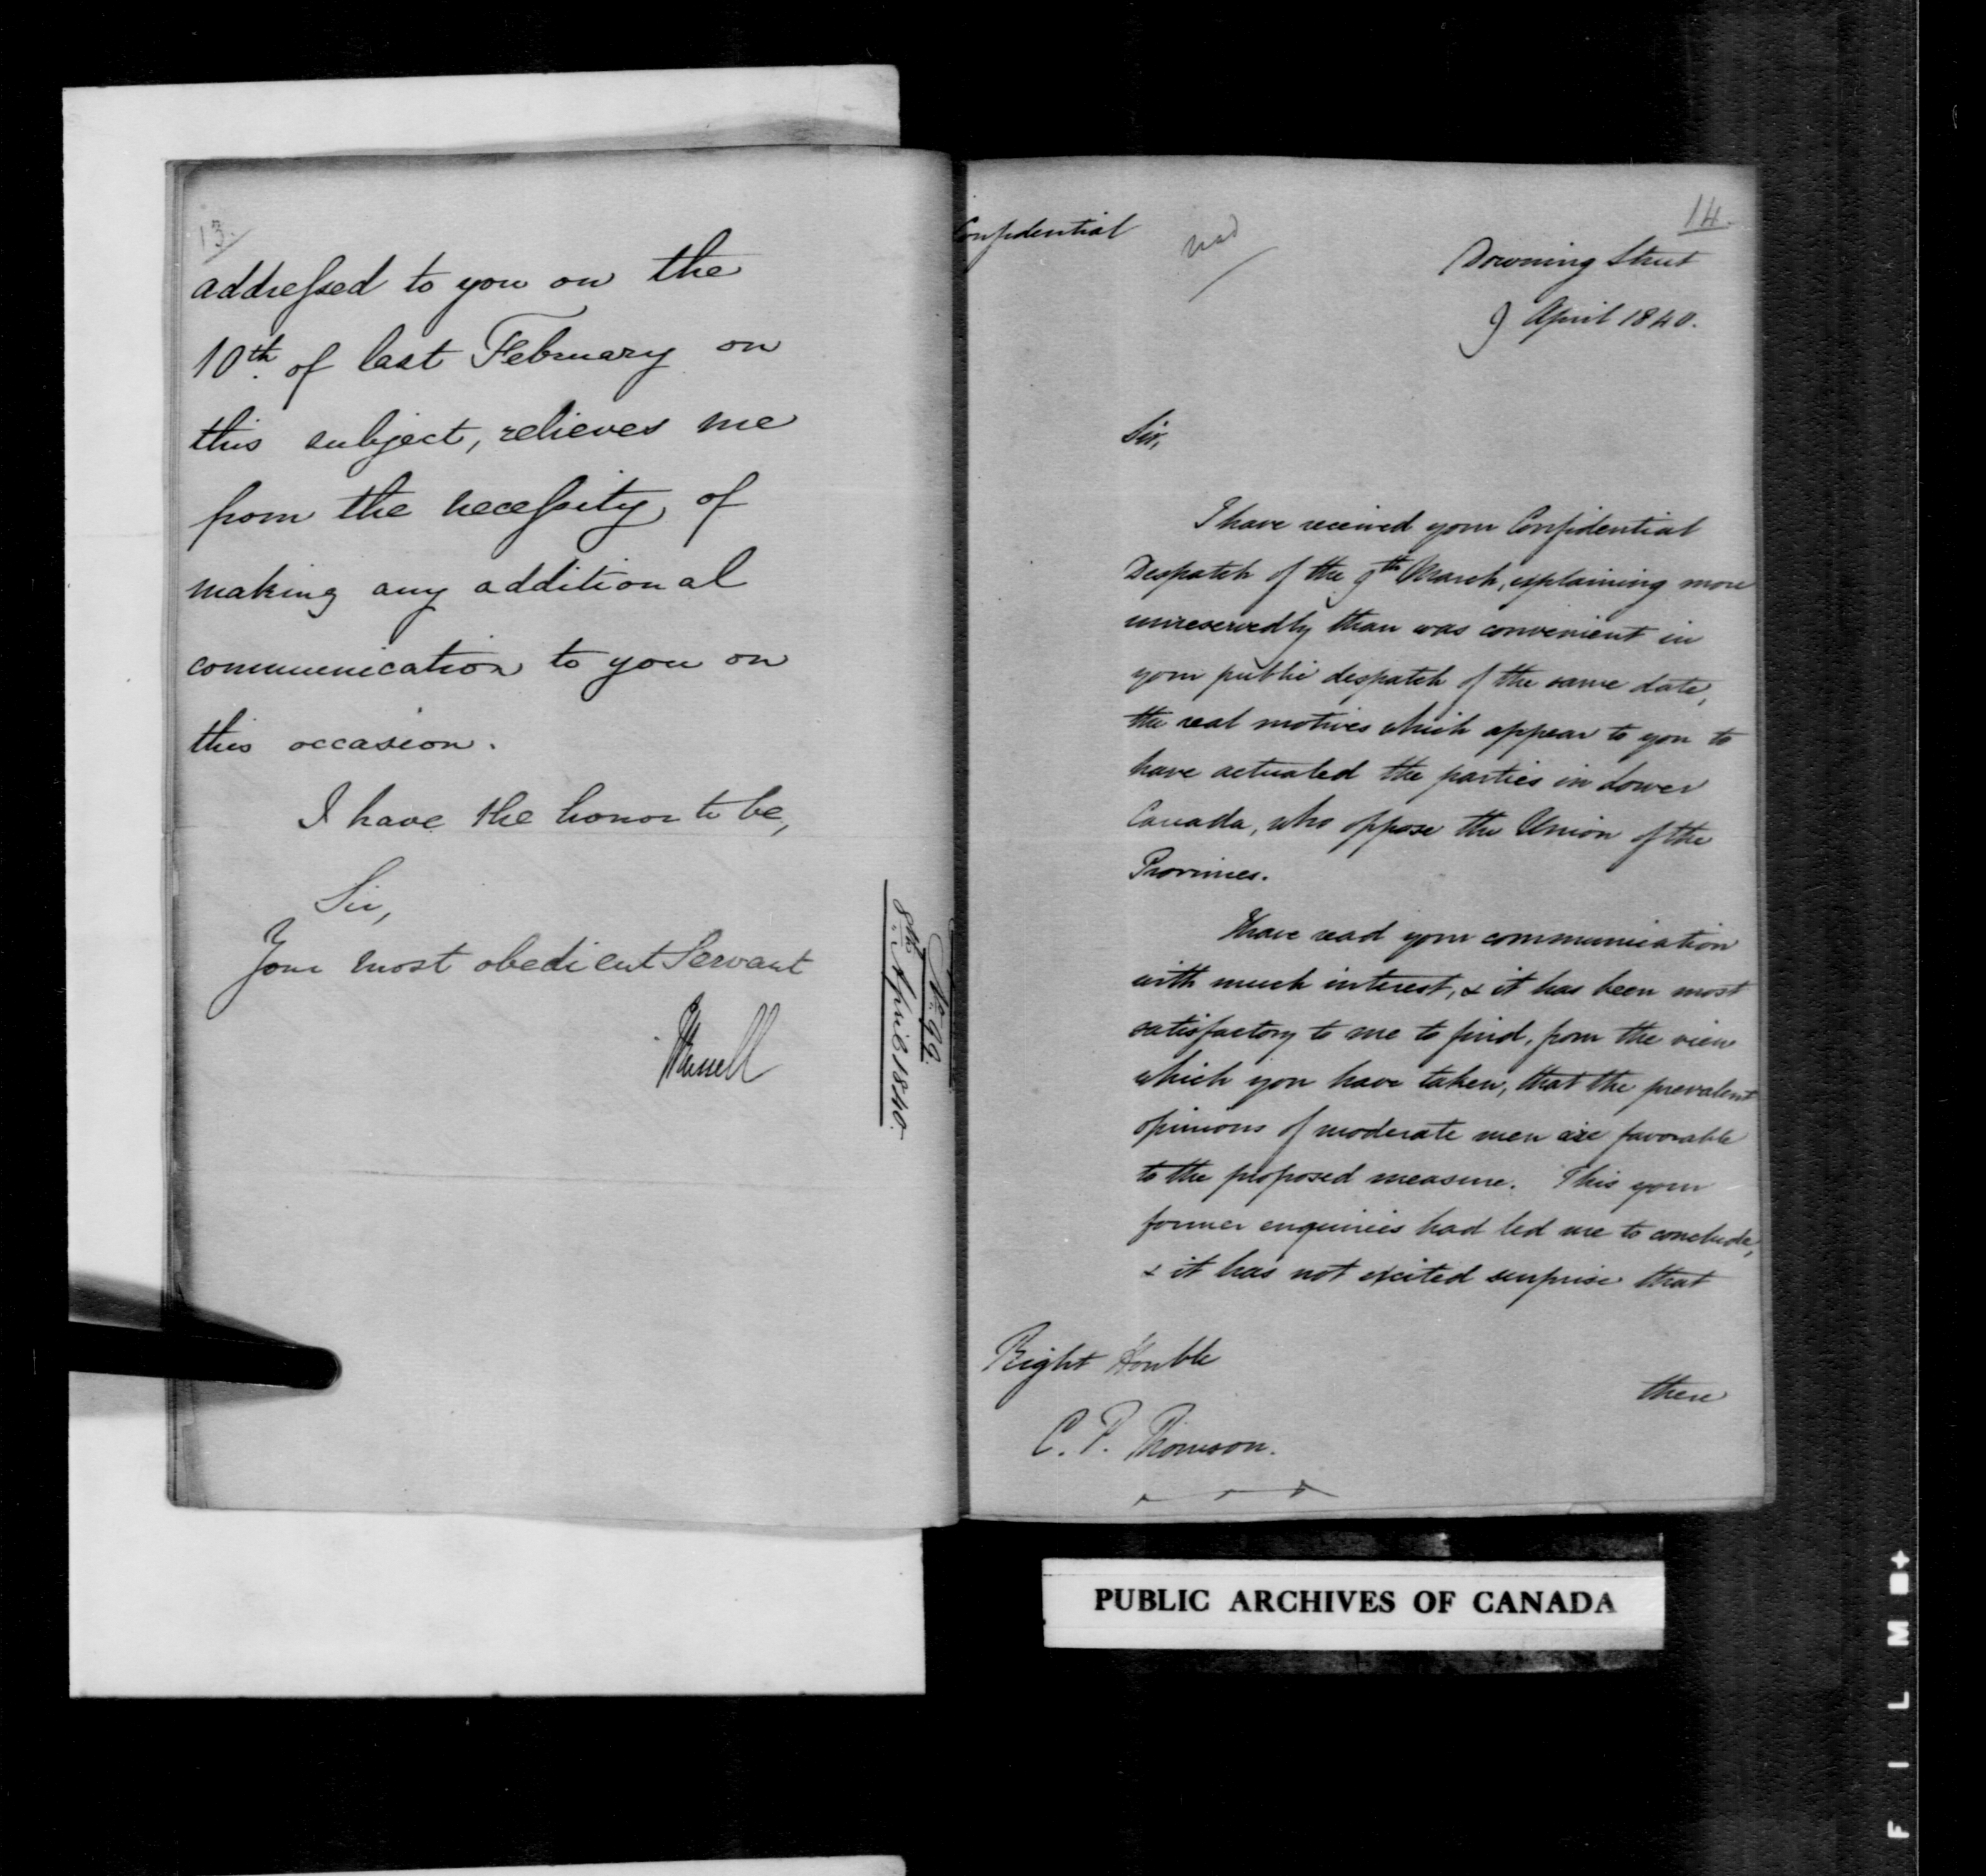 13.
addressed to you on the
10th of last February on
this subject, relieves me
from the necessity of
making any additional
communication to you on
this occasion.
I have the honor to be,
Sir,
Your most obedient Servant
JRussell
No. 99.
8th April 1840.
14.
Confidential
Downing Street
9 April 1840.
Sir,
I have received your Confidential
Despatch of the 9th March, explaining more
unreservedly than was convenient in
your public despatch of the same date,
the real motives which appear to you to
have actuated the parties in Lower
Canada, who oppose the Union of the
Provinces.
I have read your communication
with much interest, & it has been most
satisfactory to me to find, from the view
which you have taken, that the prevalent
opinions of moderate men are favorable
to the proposed measure. This your
former enquiries had led me to conclude,
& it has not excited surprise that
Right Honble
C. P. Thomson.
there
PUBLIC ARCHIVES OF CANADA
FILM